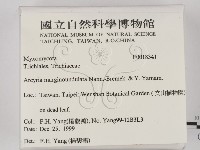 國立自然科學博物館
NATIONAL MUSEUM OF NATURAL SCIENCE
TAICHUNG, TAIWAN, R.O.CHINA
Myxomycota
Trichiales, Trichiaceae
Arcyria marginoundulata Nann.-Bremek. & Y. Yamam.
Loc.: Taiwan, Taipei, Wenshan Botanical Garden (
on dead leaf.
Col. P.H. Yang No. Yang99-12B3L3
Date: Dec. 25, 1999
P.H. Yang